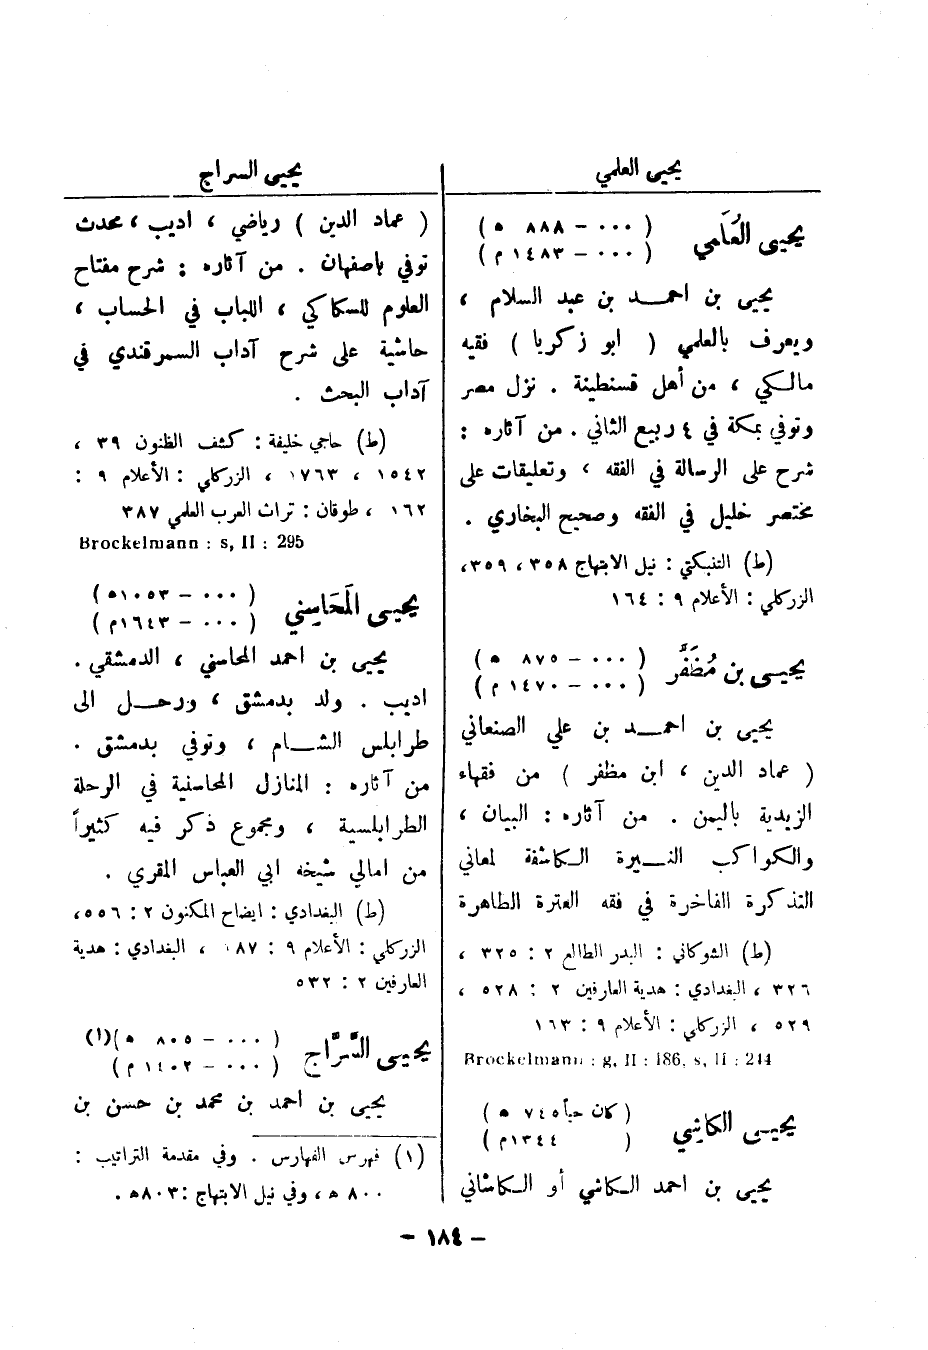 يحيى العلمي
يحيى العُلَمي
( ٠٠٠ - ٨٨٨ ه )
( ٠٠٠ - ١٤٨٣ م )
يحيى بن احمد بن عبد السلام ،
ويعرف بالعلمي ( ابو زكريا ) فقيه
مالكي ، من أهل قسنطينة . نزل مصر
وتوفي بمكة في ٤ ربيع الثاني . من آثاره :
شرح على الرسالة في الفقه ، وتعليقات على
مختصر خليل في الفقه وصحيح البخاري .
(ط) التنبكتي : نيل الابتهاج ٣٥٨ ، ٣٥٩،
الزركلي : الأعلام ٩ : ١٦٤
يحيى بن مُظَفَّر
( ٠٠٠ - ٨٧٥ ه )
( ٠٠٠ - ١٤٧٠ م )
يحيى بن احمد بن علي الصنعاني
( عماد الدين ، ابن مظفر ) من فقهاء
الزيدية باليمن . من آثاره : البيان ،
والكواكب النيرة الكاشفة لمعاني
التذكرة الفاخرة في فقه العترة الطاهرة
(ط) الشوكاني : البدر الطالع ٢ : ٣٢٥ ،
٣٢٦ ، البغدادي : هدية العارفين ٢ : ٥٢٨ ،
٥٢٩ ، الزركلي : الأعلام ٩ : ١٦٣
Brockelmann : g, II : 186, s, II : 244
يحيى الكاشي
( كان حياً ٧٤٥ ه )
( ١٣٤٤ م )
يحيى بن احمد الكاشي أو الكاشاني
يحيى السراج
( عماد الدين ) رياضي ، اديب ، محدث
توفي باصفهان . من آثاره : شرح مفتاح
العلوم للسكاكي ، اللباب في الحساب ،
حاشية على شرح آداب السمرقندي في
آداب البحث .
(ط) حاجي خليفة : كشف الظنون ٣٩ ،
١٥٤٢ ، ١٧٦٣ ، الزركلي : الأعلام ٩ :
١٦٢ ، طوقان : تراث العرب العلمي ٣٨٧
Brockelmann : s, II : 295
يحيى المَحَاسِني
( ٠٠٠ - ١٠٥٣ ه )
( ٠٠٠ - ١٦٤٣ م )
يحيى بن احمد المحاسني ، الدمشقي .
اديب . ولد بدمشق ، ورحل الى
طرابلس الشام ، وتوفي بدمشق .
من آثاره : المنازل المحاسنية في الرحلة
الطرابلسية ، ومجموع ذكر فيه كثيراً
من امالي شيخه ابي العباس المقري .
(ط) البغدادي : ايضاح المكنون ٢ : ٥٥٦،
الزركلي : الأعلام ٩ : ١٨٧ ، البغدادي : هدية
العارفين ٢ : ٥٣٢
يحيى السَّرَّاج
( ٠٠٠ - ٨٠٥ ه )(١)
( ٠٠٠ - ١٤٠٢ م )
يحيى بن احمد بن محمد بن حسن بن
(١) فهرس الفهارس . وفي مقدمة التراتيب :
٨٠٠ ه ، وفي نيل الابتهاج : ٨٠٣ه .
- ١٨٤ -